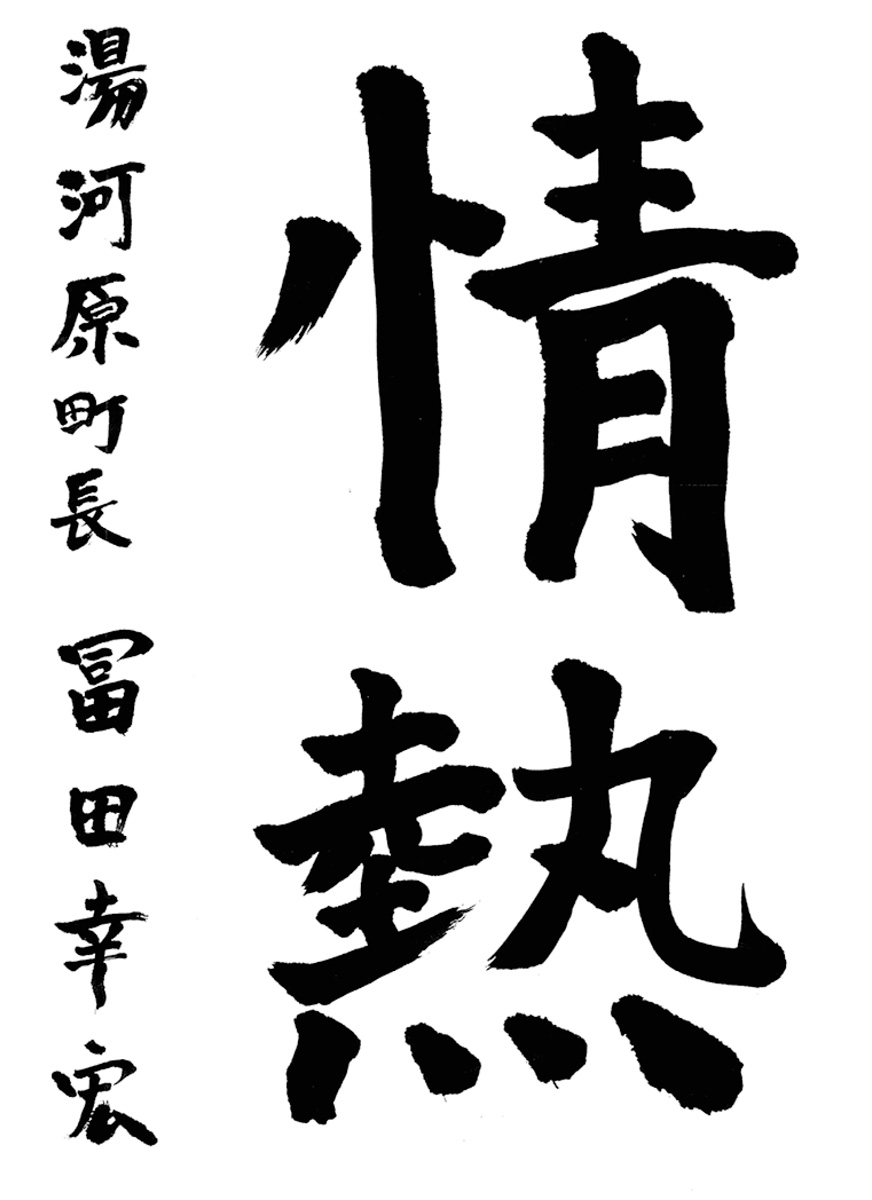 情熱
湯河原町長 冨田幸宏